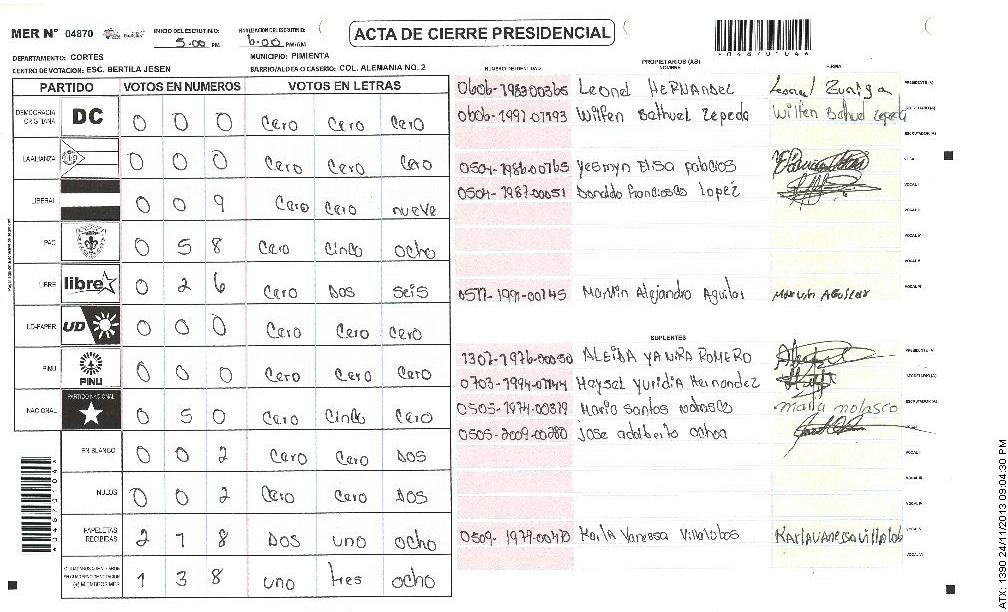 MER Nº 04870
INICIO DEL ESCRUTINIO: 5:00 PM
FINALIZACION DEL ESCRUTINIO: 6:00 PM/AM
ACTA DE CIERRE PRESIDENCIAL
DEPARTAMENTO: CORTES
MUNICIPIO: PIMIENTA
CENTRO DE VOTACION: ESC. BERTILA JESEN
BARRIO/ALDEA O CASERIO: COL. ALEMANIA NO. 2
PARTIDO VOTOS EN NUMEROS VOTOS EN LETRAS
DEMOCRACIA CRISTIANA DC 0 0 0 Cero Cero Cero
LA ALIANZA 0 0 0 Cero Cero Cero
LIBERAL 0 0 9 Cero Cero nueve
PAC 0 5 8 Cero Cinco ocho
LIBRE libre 0 2 6 Cero Dos seis
UD-FAPER UD 0 0 0 Cero Cero Cero
PINU PINU 0 0 0 Cero Cero Cero
NACIONAL PARTIDO NACIONAL 0 5 0 Cero Cinco Cero
EN BLANCO 0 0 2 Cero Cero Dos
NULOS 0 0 2 Cero Cero Dos
PAPELETAS RECIBIDAS 2 1 8 Dos uno ocho
1 3 8 uno tres ocho
NUMERO DE IDENTIDAD
PROPIETARIOS (AS)
NOMBRE
FIRMA
Leonel HERNANDEZ Leonel Zuniga
Wilfen Bathuel Zepeda Wilfen Bathuel Zepeda
Yesmyn Elisa palacios
Donaldo francisco Lopez
Marvin Alejandro Aguilar Marvin Aguilar
SUPLENTES
ALEIDA YANIRA ROMERO
Haysel Yuridia Hernandez
Maria Santos nolasco maria nolasco
jose adalberto ochoa
Karla Vanessa Villalobos Karla vanessa villalob
ATX: 1390 24/11/2013 09:04:30 PM